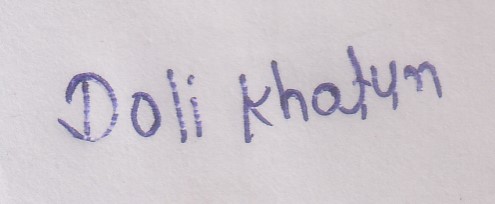 Doli khatun